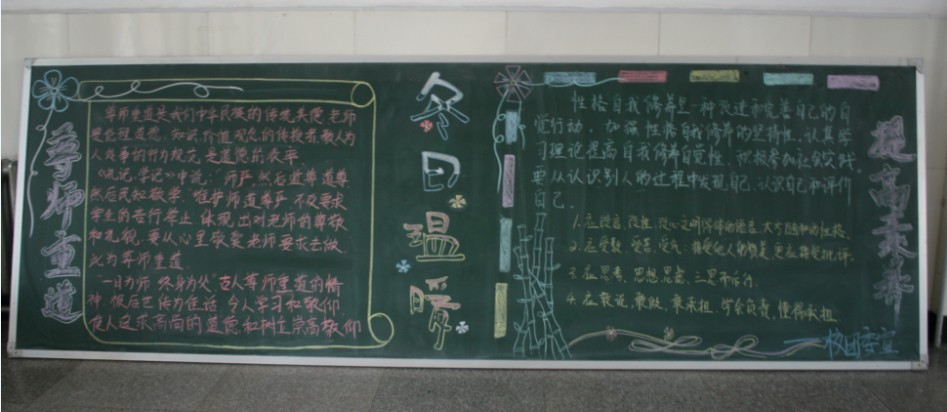 尊师重道
尊师重道是我们中华民族的传统美德 老师
是伦理道德 知识 价值观念的传授者 教人为
人处事的行为规范 是道德的表率
《礼记·学记》中说："师严 然后道尊 道尊
然后民知敬学" 维护师道尊严 不仅要求
学生的言行举止 体现出对老师的尊敬
和礼貌 要从心里敬爱老师 要求去做
成为尊师重道
"一日为师 终身为父" 古人尊师重道的精
神 被后世传为佳话 今人学习和敬仰
使人追求高尚的道德和个性 崇高敬仰
冬日温暖
提高素养
性格自我修养是一种改进和完善自己的自
觉行动。加强性格自我修养的坚持性，认真学
习理论提高自我修养自觉性，积极参加社会实践
要从认识别人的过程中发现自己，认识自己和评价
自己。
3. 应思考，思想思虑，三思而后行。
4. 应敢说，敢做，敢承担，学会负责，懂得承担
——校团委宣